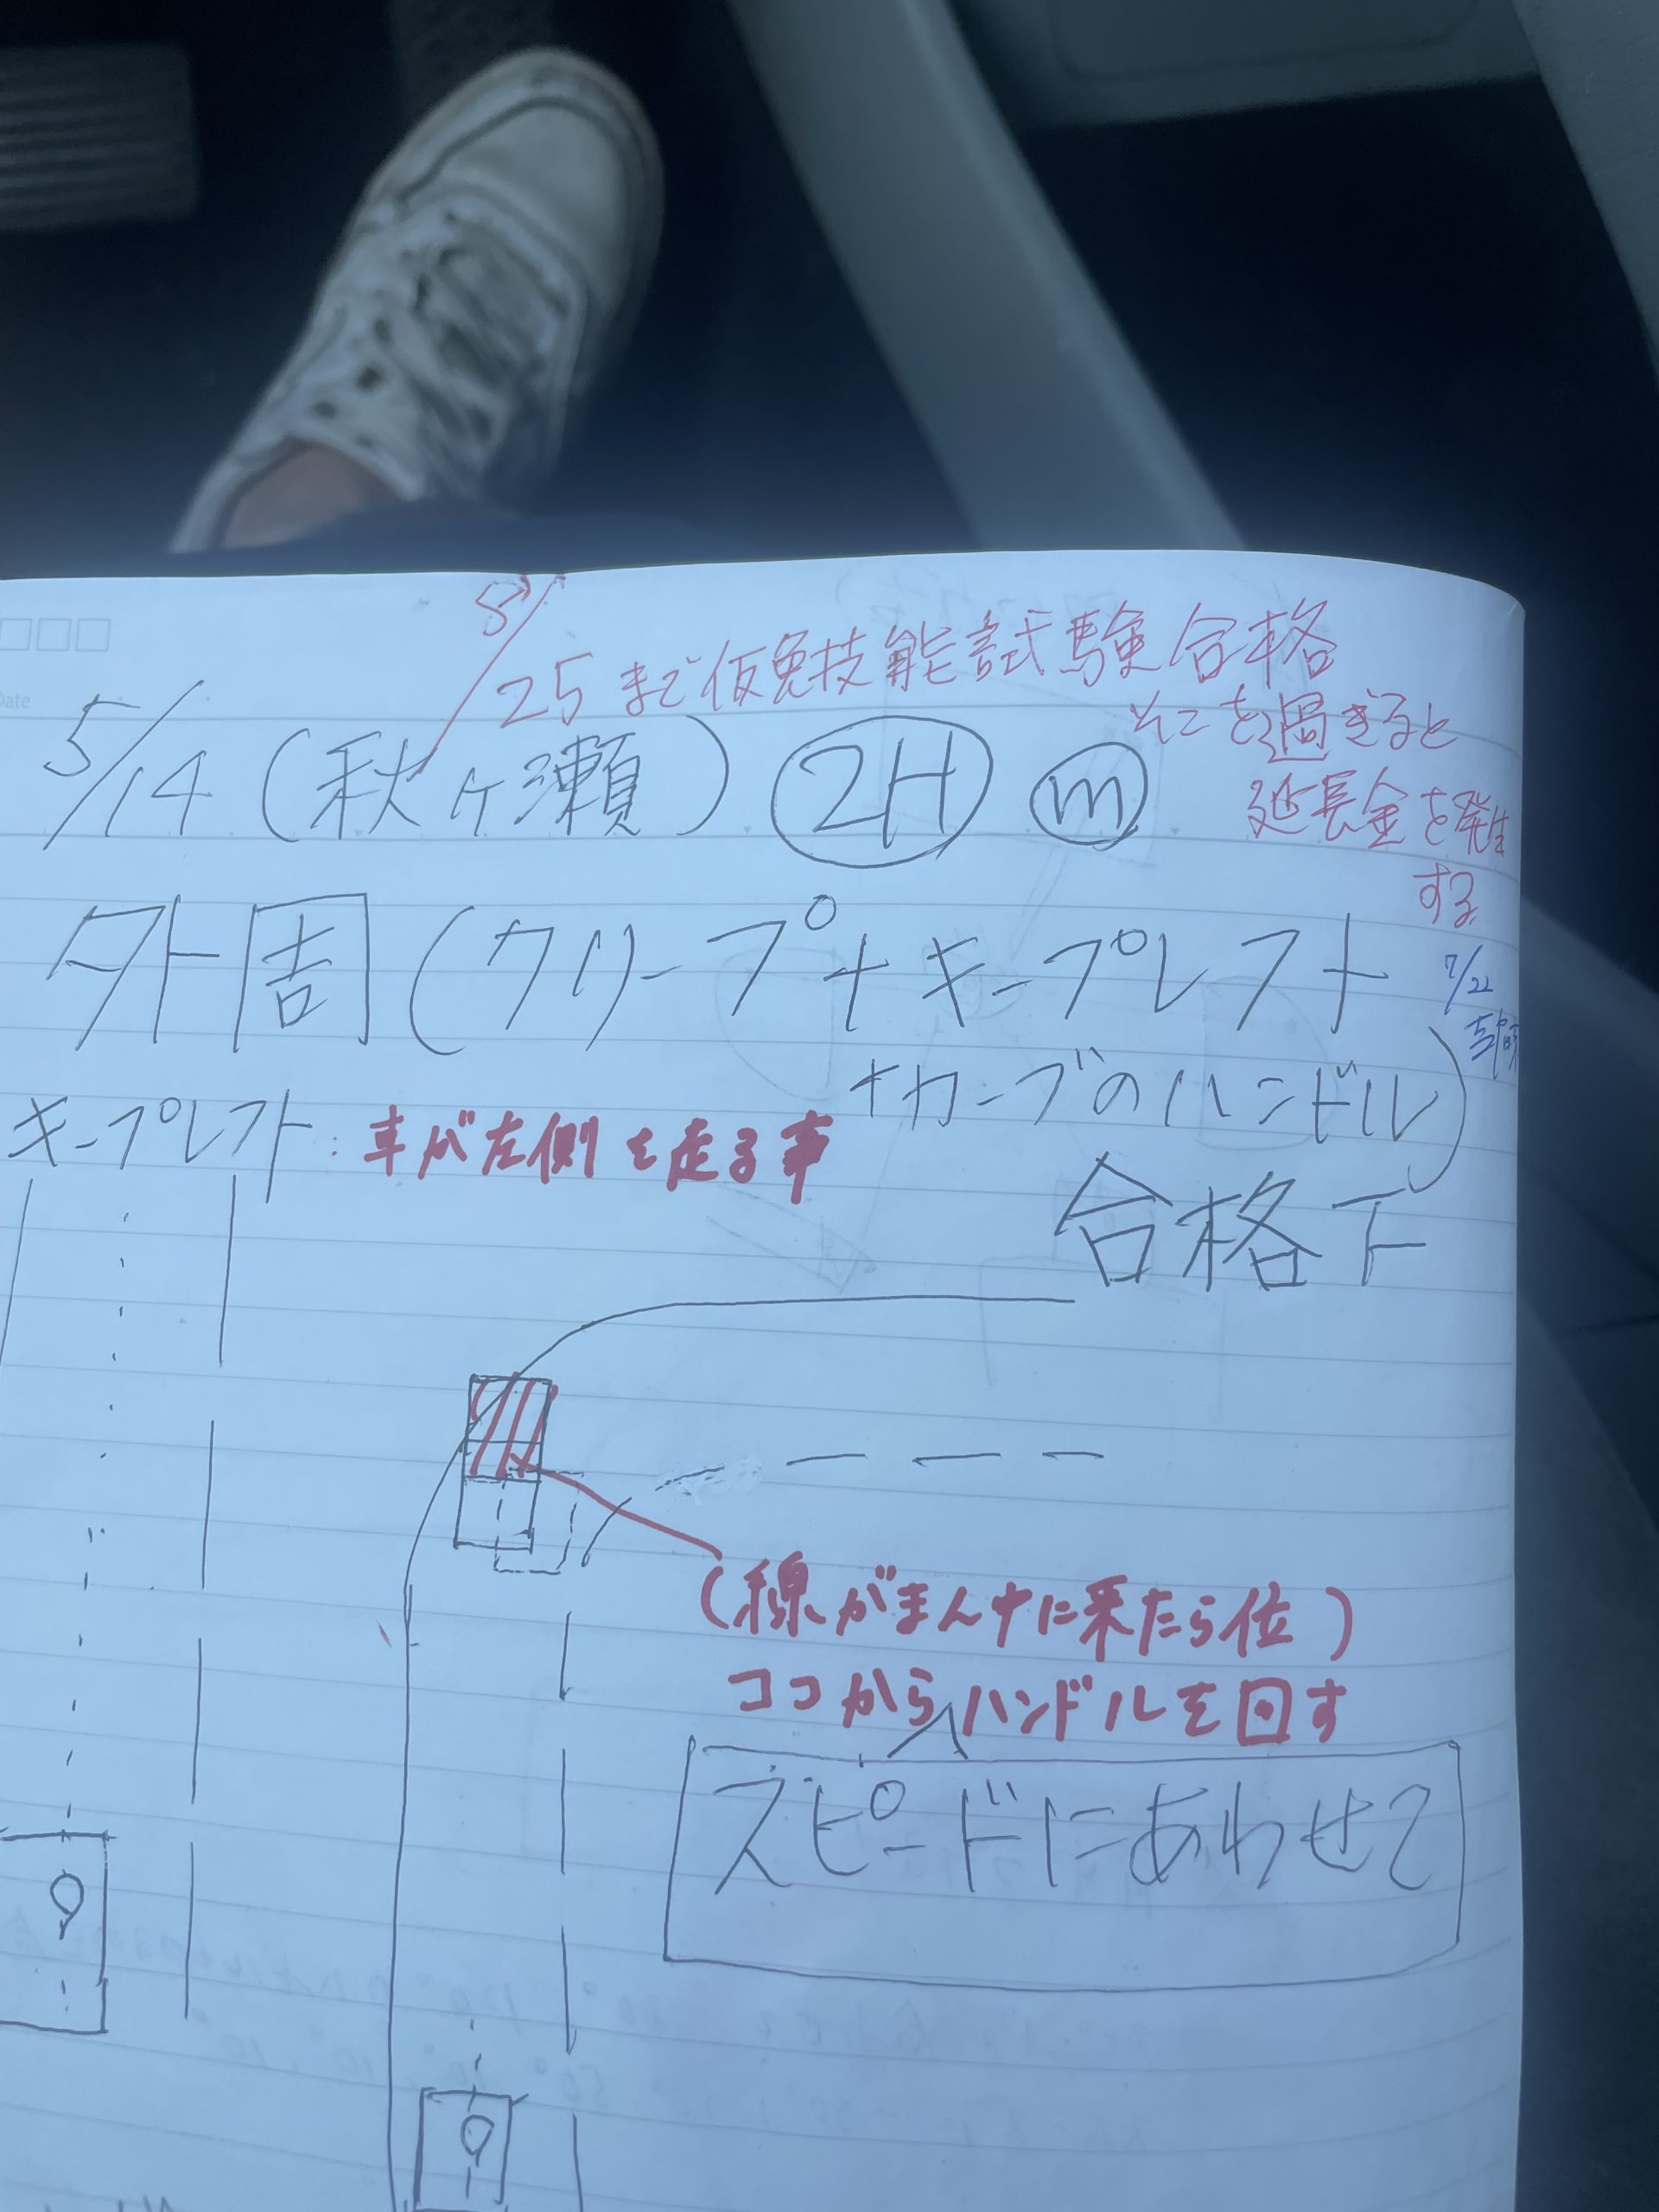 Date
8/25まで仮免技能試験合格
そこを過ぎると
延長金を発生
する
5/14(秋ヶ瀬) 2H m
外周(クリープ+キープレフト
+カーブのハンドル)
7/22
キープレフト:車が左側を走る事
合格下
(線がまん中に来たら位)
ココからハンドルを回す
スピードにあわせて